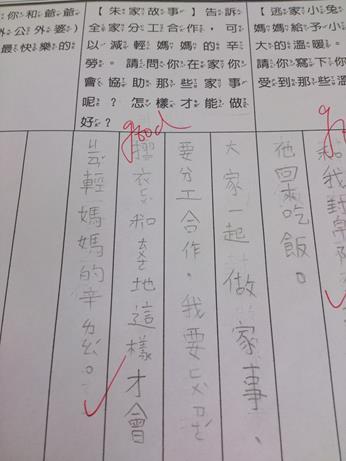 你和爺爺
外公外婆)
最快樂的
【朱家故事】告訴
全家分工合作，可
以減輕媽媽的辛
勞。請問你在家你
會協助那些家事
呢？怎樣才能做
好？
【逃家小兔
媽媽給予小
大的溫暖。
請你寫下你
受到那些溫
good
和我對
他回來吃飯。
大家一起做家事、
要分工合作。我要
摺衣和地這樣才會
輕媽媽的辛ㄌㄠˊ。